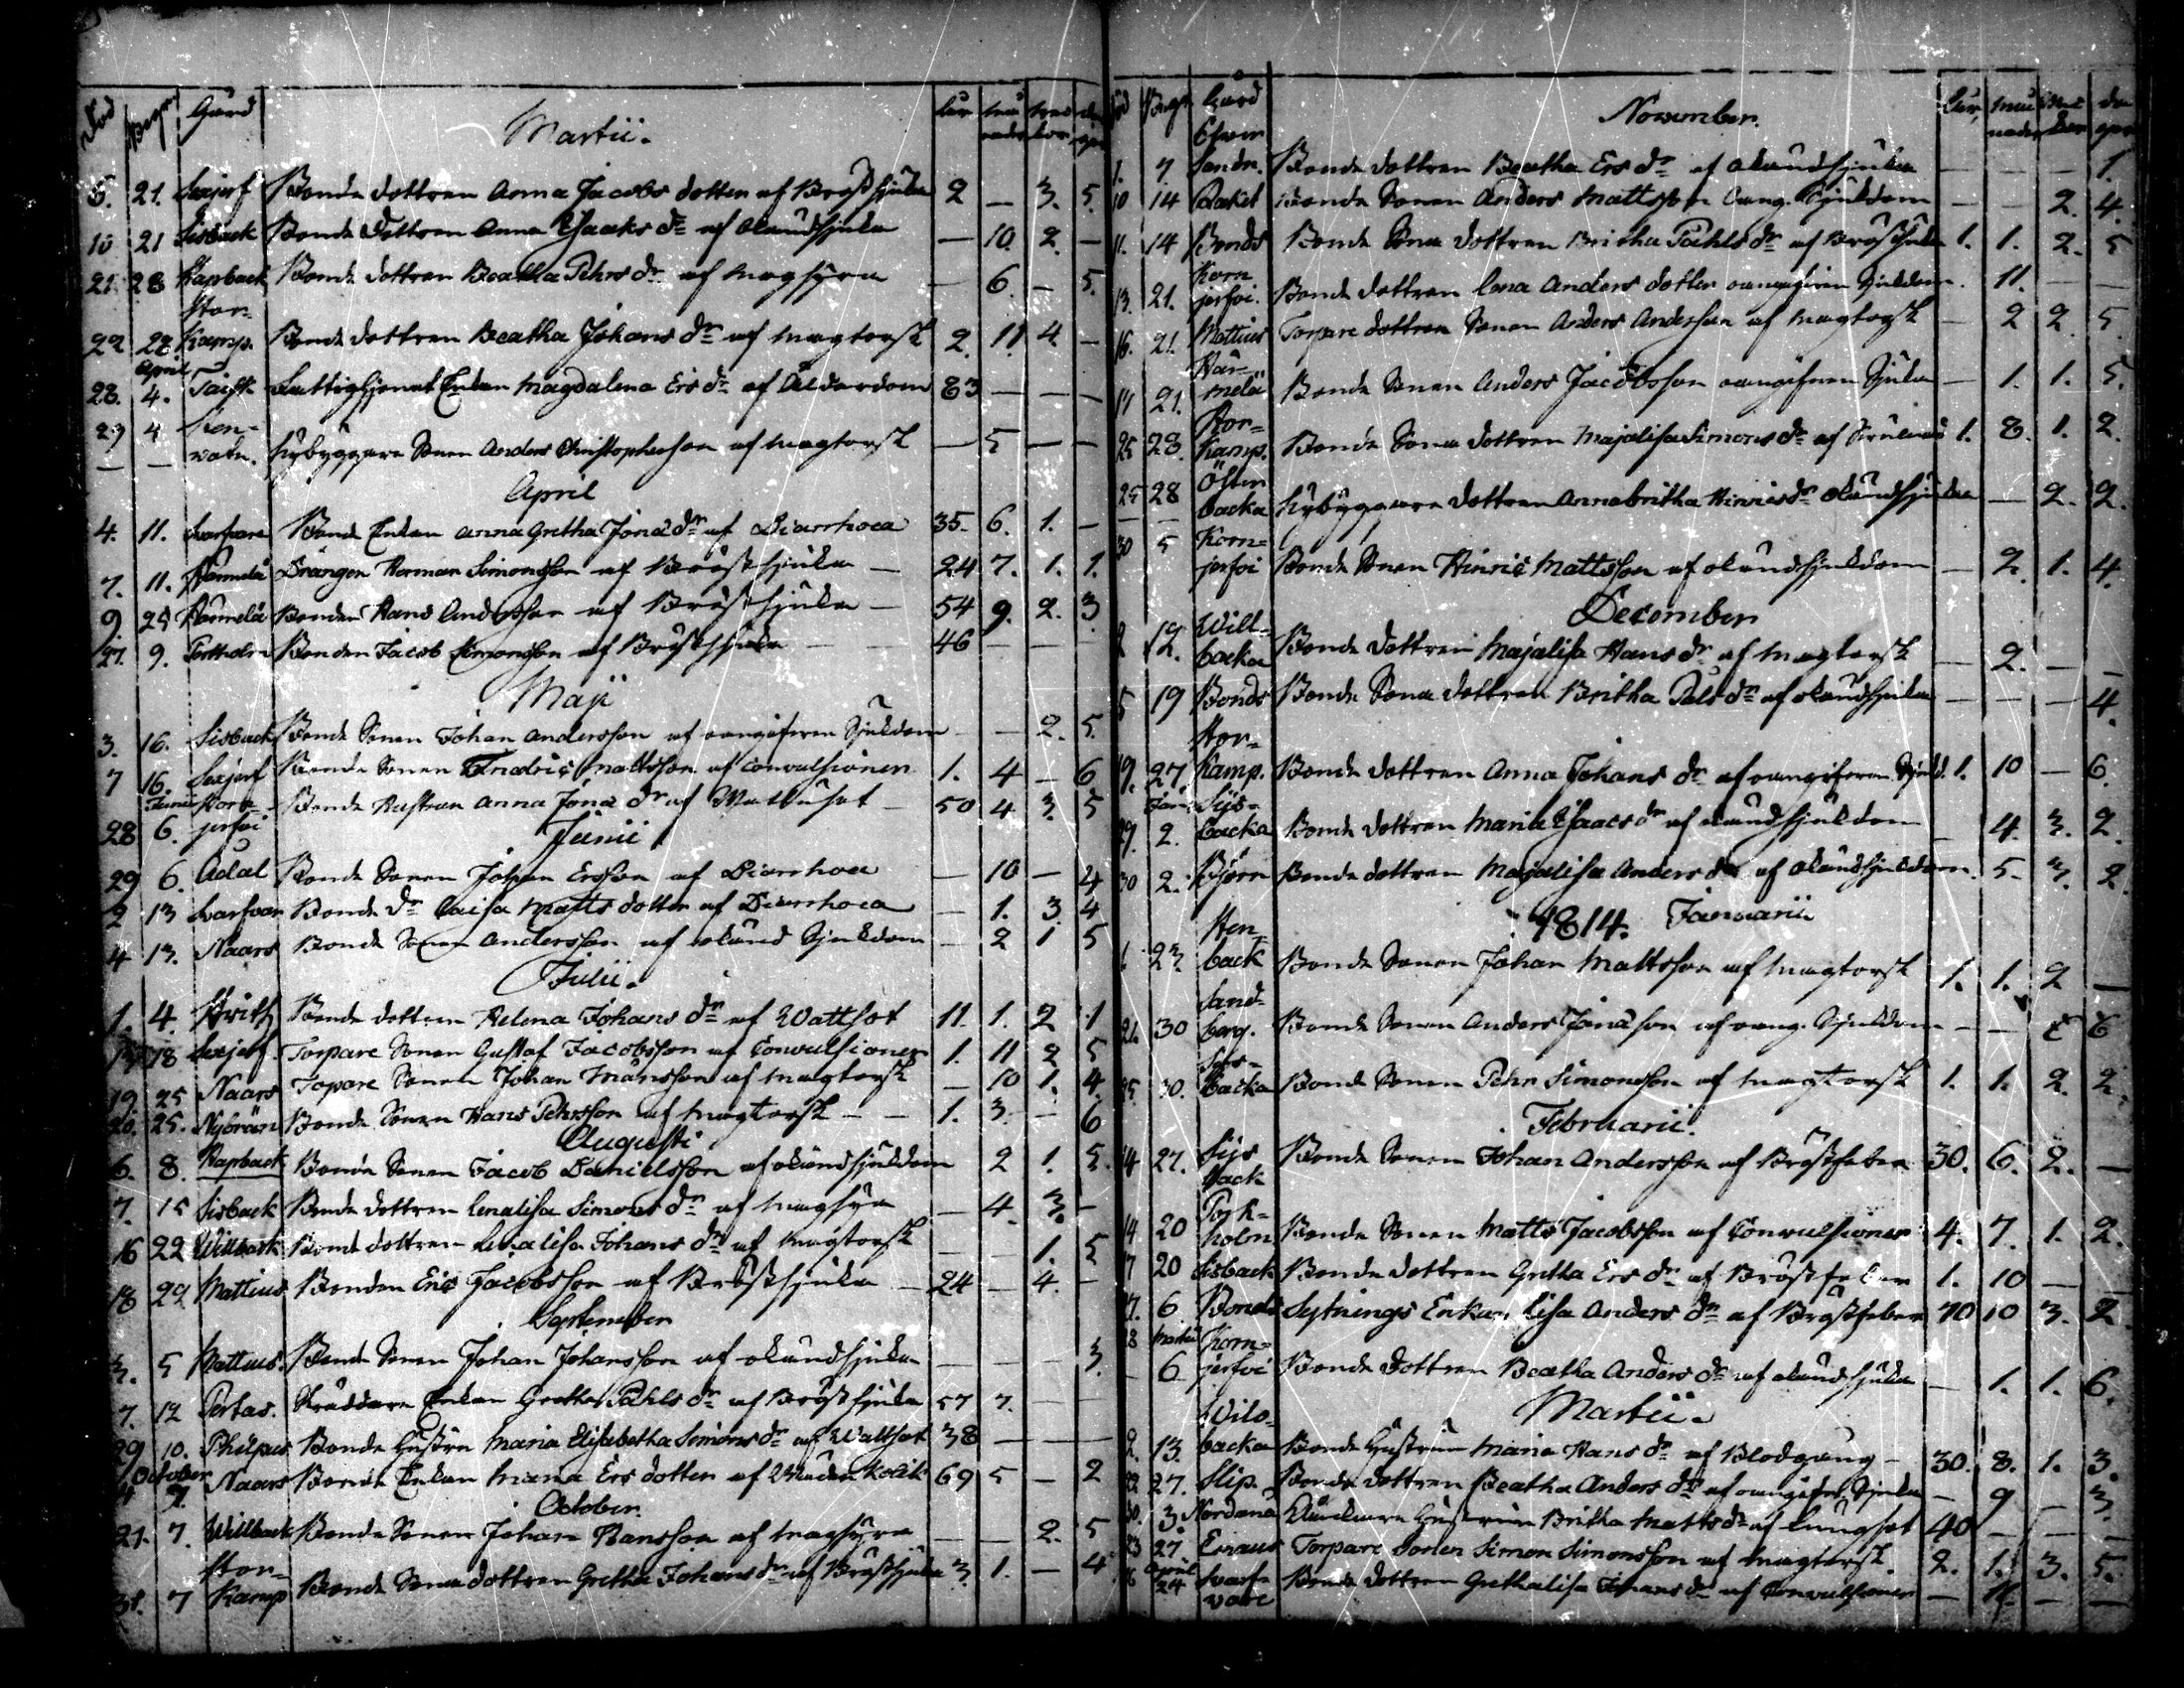 Död Begr. Gård Martii. år må nader vec kor da gar
5. 21. Sexjerf Bonde dottren Anna Jacobs dotter af Bröstsjuka 2 — 3. 5.
10 21 Sisback Bonde Dottren Anna Isaaks dr af okändsjuka — 10. 2. —
21. 28 Kapback Bonde dottren Beatha Pehrs dr af magsyra — 6 — 5.
Stor-
22 28 Kamp. Bonde dottren Beatha Johans dr af magtorsk 2. 11. 4. —
April
28. 4. Taist Fattighjonet Enkan Magdalena Ers dr af Ålderdom 83 — — —
29 4 Sten-
— — vatn. Nybyggare Sonen Anders Christophersson af magtorsk — 5 — —
April
4. 11. Svarfvare Bonde Enkan Anna Gretha Jonæ dr af Diarrhoea 35. 6. 1. —
7. 11. Härmälä Drängen Herman Simonsson af Bröstsjuka — 24 7. 1. 1.
9 25 Härmälä Bonden Hans Andersson af Bröstsjuka — 54 9. 2. 3
27. 9. Portholm Bonden Jacob Simonsson af Bröstsjuka — 46 — —
Maji
3. 16. Sisback Bonde Sonen Johan Andersson af oangifven Sjukdom — — 2. 5.
7 16. Sexjerf Bonde Sonen Fredric Mattsson af Convulsioner 1. 4 — 6
Junii Korn- Bonde Hustrun Anna Jonæ dr af Wattusot — 50 4 3. 5
28 6. jerfvi
Junii
29 6. Adal Bonde Sonen Johan Ersson af Diarrhoea — 10 — 4
2 13 Svarfvar Bonde dr Caisa Matts dotter af Diarrhoea — 1. 3. 4
4 13. Naars Bonde Sonen Andersson af okänd Sjukdom — 2 1 5
Julii.
1. 4. Bonde dottren Helena Johans dr af Wattsot 11. 1. 2 1
18 Sexjerf Torpare Sonen Gustaf Jacobsson af Convulsioner 1. 11 2 5
19. 25 Naars Topare Sonen Johan Månsson af magtorsk — 10 1. 4.
20. 25. Nybrän Bonde Sonen Hans Pehrsson af magtorsk — — 1. 3. — 6
Augusti
6. 8. Kapback Bonde Sonen Jacob Danielsson af okändsjukdom 2 1. 5.
7. 15 Sisback Bonde dottren Lenalisa Simons dr af magsyra — 4. 3. —
16 22 Willback Bonde dottren Lenalisa Johans dr af magtorsk — — 1. 5
18 22 Mattius Bonden Eric Jacobsson af Bröstsjuka — 24 — 4. —
September
3. 5 Mattius. Bonde Sonen Johan Johansson af okändsjuka — — — 3.
7. 12 Pertas. Skräddare Enkan Gretha Påhls dr af Bröstsjuka 57 7. — —
29 10. Philpus Bonde Hustru Maria Elisabetha Simons dr af Wattsot 38 — — —
October Naars Bonde Enkan Maria Ers dotter af Kolik 69 5 — 2
4 7.
October.
21. 7. Willback Bonde Sonen Johan Hansson af magsyra — — 2. 5
Stor-
31. 7 Kamp Bonde Sona dottren Gretha Johans dr af Bröstsjuka 3. 1. — 4
Död Begr. Gård November. år, må nader vec kor da gar
1. 7 Sandn. Bonde dottren Beatha Ers dr af okändsjuka — — — 1.
10 14 Backet Bonde Sonen Anders Mattsson oang. Sjukdom — — 2. 4.
11. 14 Bonds Bonde Sona dottren Britha Påhls dr af Bröstsjuka 1. 1. 2. 5
Korn
13. 21. jerfvi. Bonde dottren Lena Anders dotter oangifven Sjukdom. — 11. — —
16. 21. Mattius Torpare dottren Sonen Anders Andersson af magtorsk — 2 2 5
Här-
17 21. mälä Bonde Sonen Anders Jacobsson oangifven Sjuka — 1. 1. 5.
Stor-
25 28. Kamp. Bonde Sona dottren Majalisa Simons dr af 1. 8. 1. 2.
Öster
25 28 backa Nybyggare dottren Annabritha Hinrics dr okändsjuka — 2. 2.
Korn-
30 5 jerfvi Bonde Sonen Hinric Mattsson af okändsjukdom — 2. 1. 4.
December
Will-
12. backa Bonde dottren Majalisa Hans dr af magtorsk — 2. — —
5 19 Bonds Bonde Sona dottren Britha Påls dr af okändsjuka — — — 4.
Stor-
19. 27. Kamp. Bonde dottren Anna Johans dr af oangifven Sjukd. 1. 10 — 6.
Jan. Sijs-
29. 2. backa Bonde dottren Maria Isaacs dr af okändsjukdom — 4. 3. 2.
30 2. Björn Bonde dottren Majalisa Anders dr af okändsjukdom. 5. 3. 2.
1814. Januarii
Sten-
23. back Bonde Sonen Johan Mattsson af magtorsk 1. 1. 2 —
Sand-
21. 30 berg. Bonde Sonen Anders Jonasson af oang. Sjukdom — — 6
Sijs-
25. 30. backa Bonde Sonen Pehr Simonsson af magtorsk 1. 1. 2. 2.
Februarii.
14 27. Sijs Bonde Sonen Johan Andersson af Bröstfeber 30. 6. 2. —
back
Port-
14 20 holm Bonde Sonen Matts Jacobsson af Convulsioner 4. 7. 1. 2.
7 20 Sisback Bonde dottren Gretha Ers dr af Bröstfeber 1. 10 —
17. 6 Bonds Sytnings Enkan Lisa Anders dr af Bröstfeber 70 10 3. 2.
Martii Korn-
6 jerfvi Bonde Dottren Beatha Anders dr af okändsjuka — 1. 1. 6.
Martii.
Wil-
2. 13. backa Bonde Hustrun Maria Hans dr af Blodgång — 30. 8. 1. 3.
22. 27. Slip. Bonde dottren Beatha Anders dr af oangifven Sjuka — 9 — 3.
30. 3. Nordanå Hustrun Britha Matts dr af lungsot 40 — — —
23 27 Ernaus Torpare Sonen Simon Simonsson af magtorsk. 2. 1. 3. 5.
April
16 24 Svarf- Bonde dottren Grethalisa Johans dr af Convulsioner — 11. — —
vare